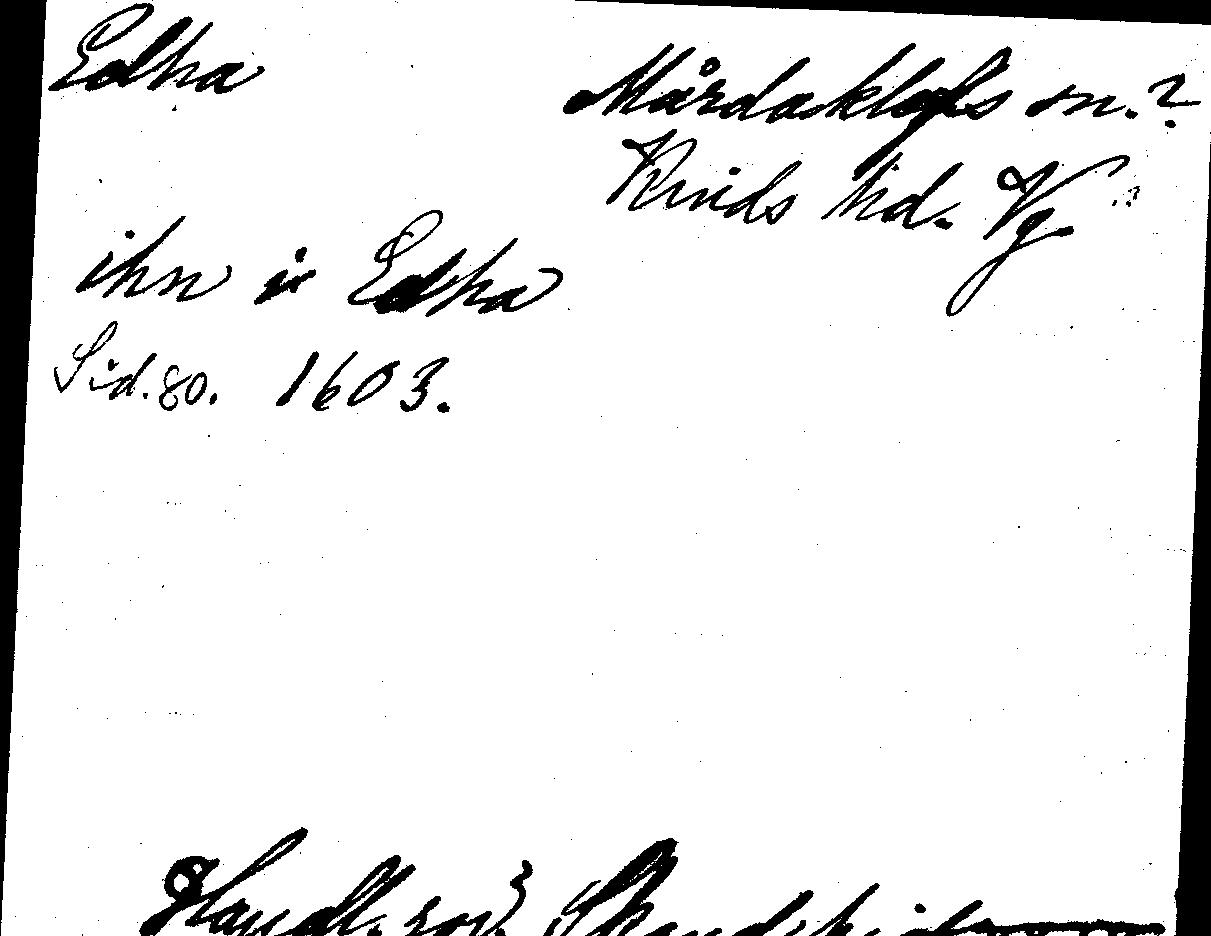 Edha
Mårdaklefs sn.?
Kinds hd. Vg.
ihn i Edha
Sid. 80. 1603.
Handl. rör. Skand.